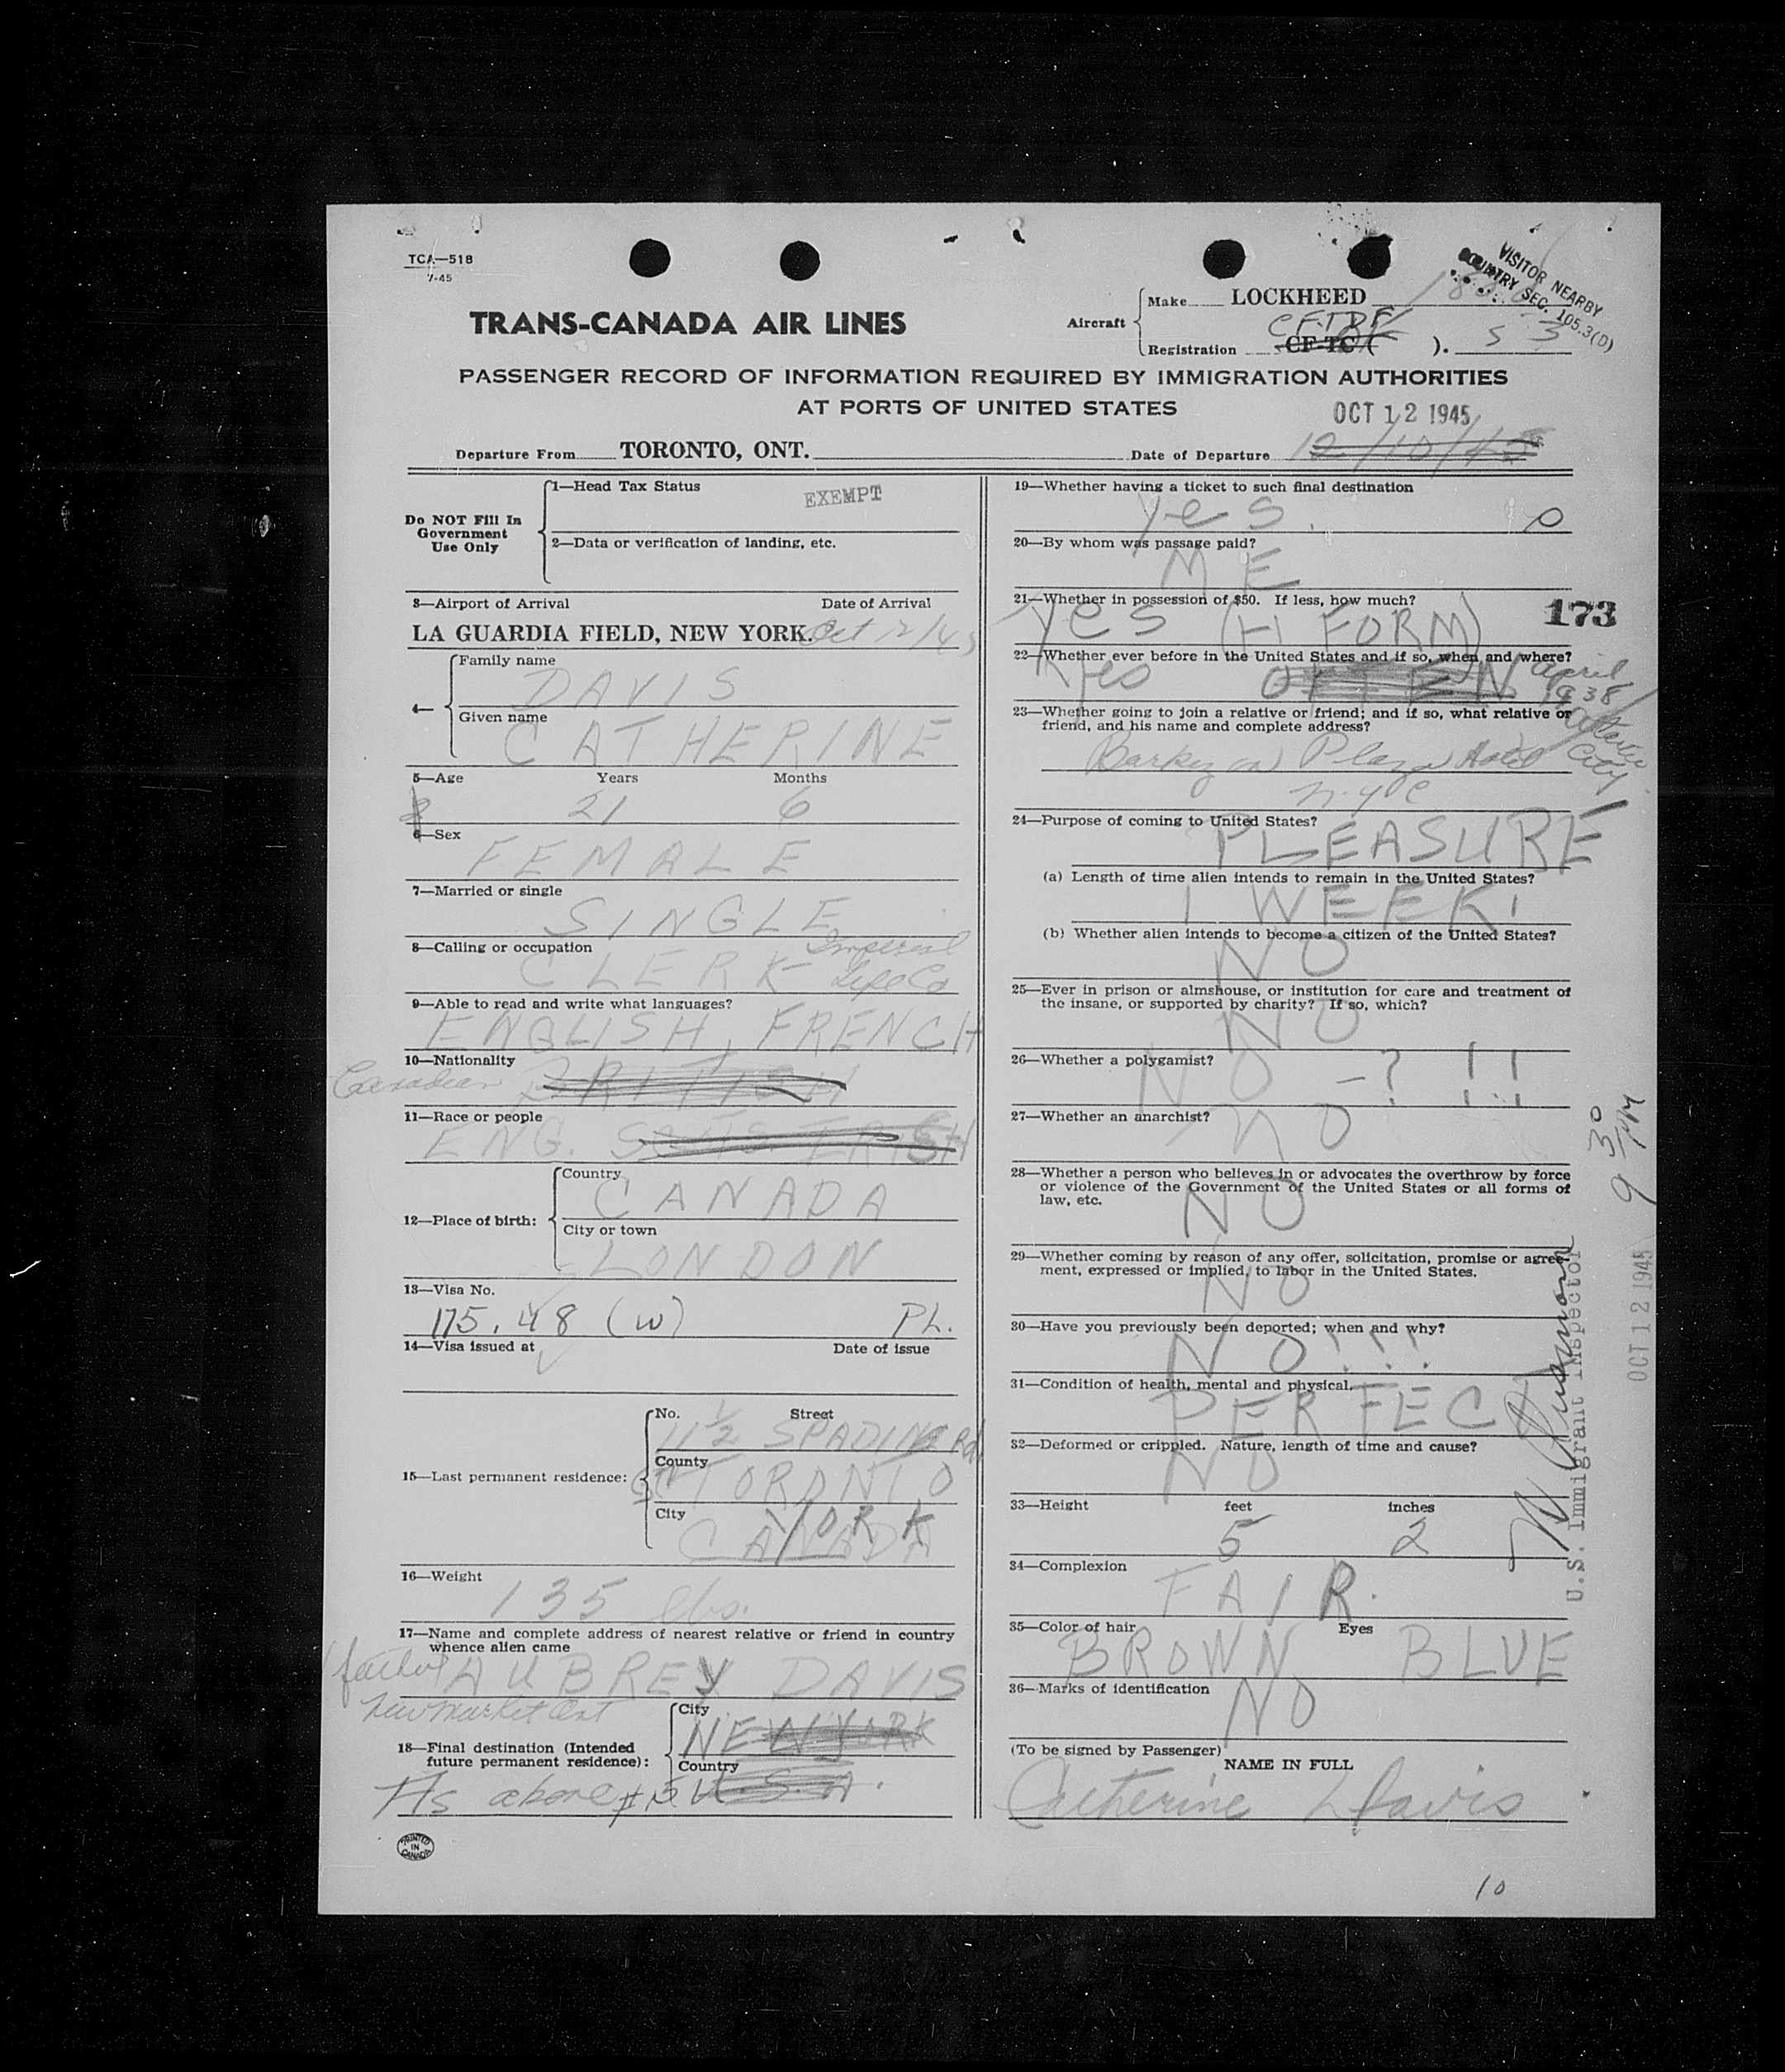 TCA—518
7-45
VISITOR NEARBY
COUNTRY SEC. 105.3(D)
TRANS-CANADA AIR LINES
Aircraft
Make LOCKHEED
CFTDF
Registration CF-TC ( ). 53
PASSENGER RECORD OF INFORMATION REQUIRED BY IMMIGRATION AUTHORITIES
AT PORTS OF UNITED STATES
OCT 12 1945
Departure From TORONTO, ONT. Date of Departure 12/10/45
Do NOT Fill In
Government
Use Only
1—Head Tax Status
EXEMPT
2—Data or verification of landing, etc.
3—Airport of Arrival Date of Arrival
LA GUARDIA FIELD, NEW YORK. Oct 12/45
4—
Family name
DAVIS
Given name
CATHERINE
5—Age Years Months
21 6
6—Sex
FEMALE
7—Married or single
SINGLE
8—Calling or occupation
CLERK Imperial
Life Co
9—Able to read and write what languages?
ENGLISH, FRENCH
10—Nationality
Canadian BRITISH
11—Race or people
ENG. SCOTS IRISH
12—Place of birth:
Country
CANADA
City or town
LONDON
13—Visa No.
175.48 (W) PL.
14—Visa issued at Date of issue
15—Last permanent residence:
No. Street
11½ SPADINA Rd
County
TORONTO
City
YORK
CANADA
16—Weight
135 lbs.
17—Name and complete address of nearest relative or friend in country
whence alien came
father AUBREY DAVIS
New Market Ont
18—Final destination (Intended
future permanent residence):
City
NEW YORK
Country
U.S.A.
As above #15
PRINTED
IN
CANADA
19—Whether having a ticket to such final destination
Yes.
20—By whom was passage paid?
ME
21—Whether in possession of $50. If less, how much?
Yes (H FORM)
173
22—Whether ever before in the United States and if so, when and where?
Yes OFTEN April
1938
Atlantic
City
23—Whether going to join a relative or friend; and if so, what relative or
friend, and his name and complete address?
Barbizon Plaza Hotel
N.Y.C
24—Purpose of coming to United States?
PLEASURE
(a) Length of time alien intends to remain in the United States?
1 WEEK!
(b) Whether alien intends to become a citizen of the United States?
NO
25—Ever in prison or almshouse, or institution for care and treatment of
the insane, or supported by charity? If so, which?
NO
26—Whether a polygamist?
NO —? !!
27—Whether an anarchist?
NO
28—Whether a person who believes in or advocates the overthrow by force
or violence of the Government of the United States or all forms of
law, etc.
NO
29—Whether coming by reason of any offer, solicitation, promise or agree-
ment, expressed or implied, to labor in the United States.
NO
30—Have you previously been deported; when and why?
NO!!!
31—Condition of health, mental and physical.
PERFECT
32—Deformed or crippled. Nature, length of time and cause?
NO
33—Height feet inches
5 2
34—Complexion
FAIR.
35—Color of hair Eyes
BROWN BLUE
36—Marks of identification
NO
(To be signed by Passenger)
NAME IN FULL
Catherine L Davis
9 30 PM
OCT 12 1945
U.S. Immigrant Inspector
10